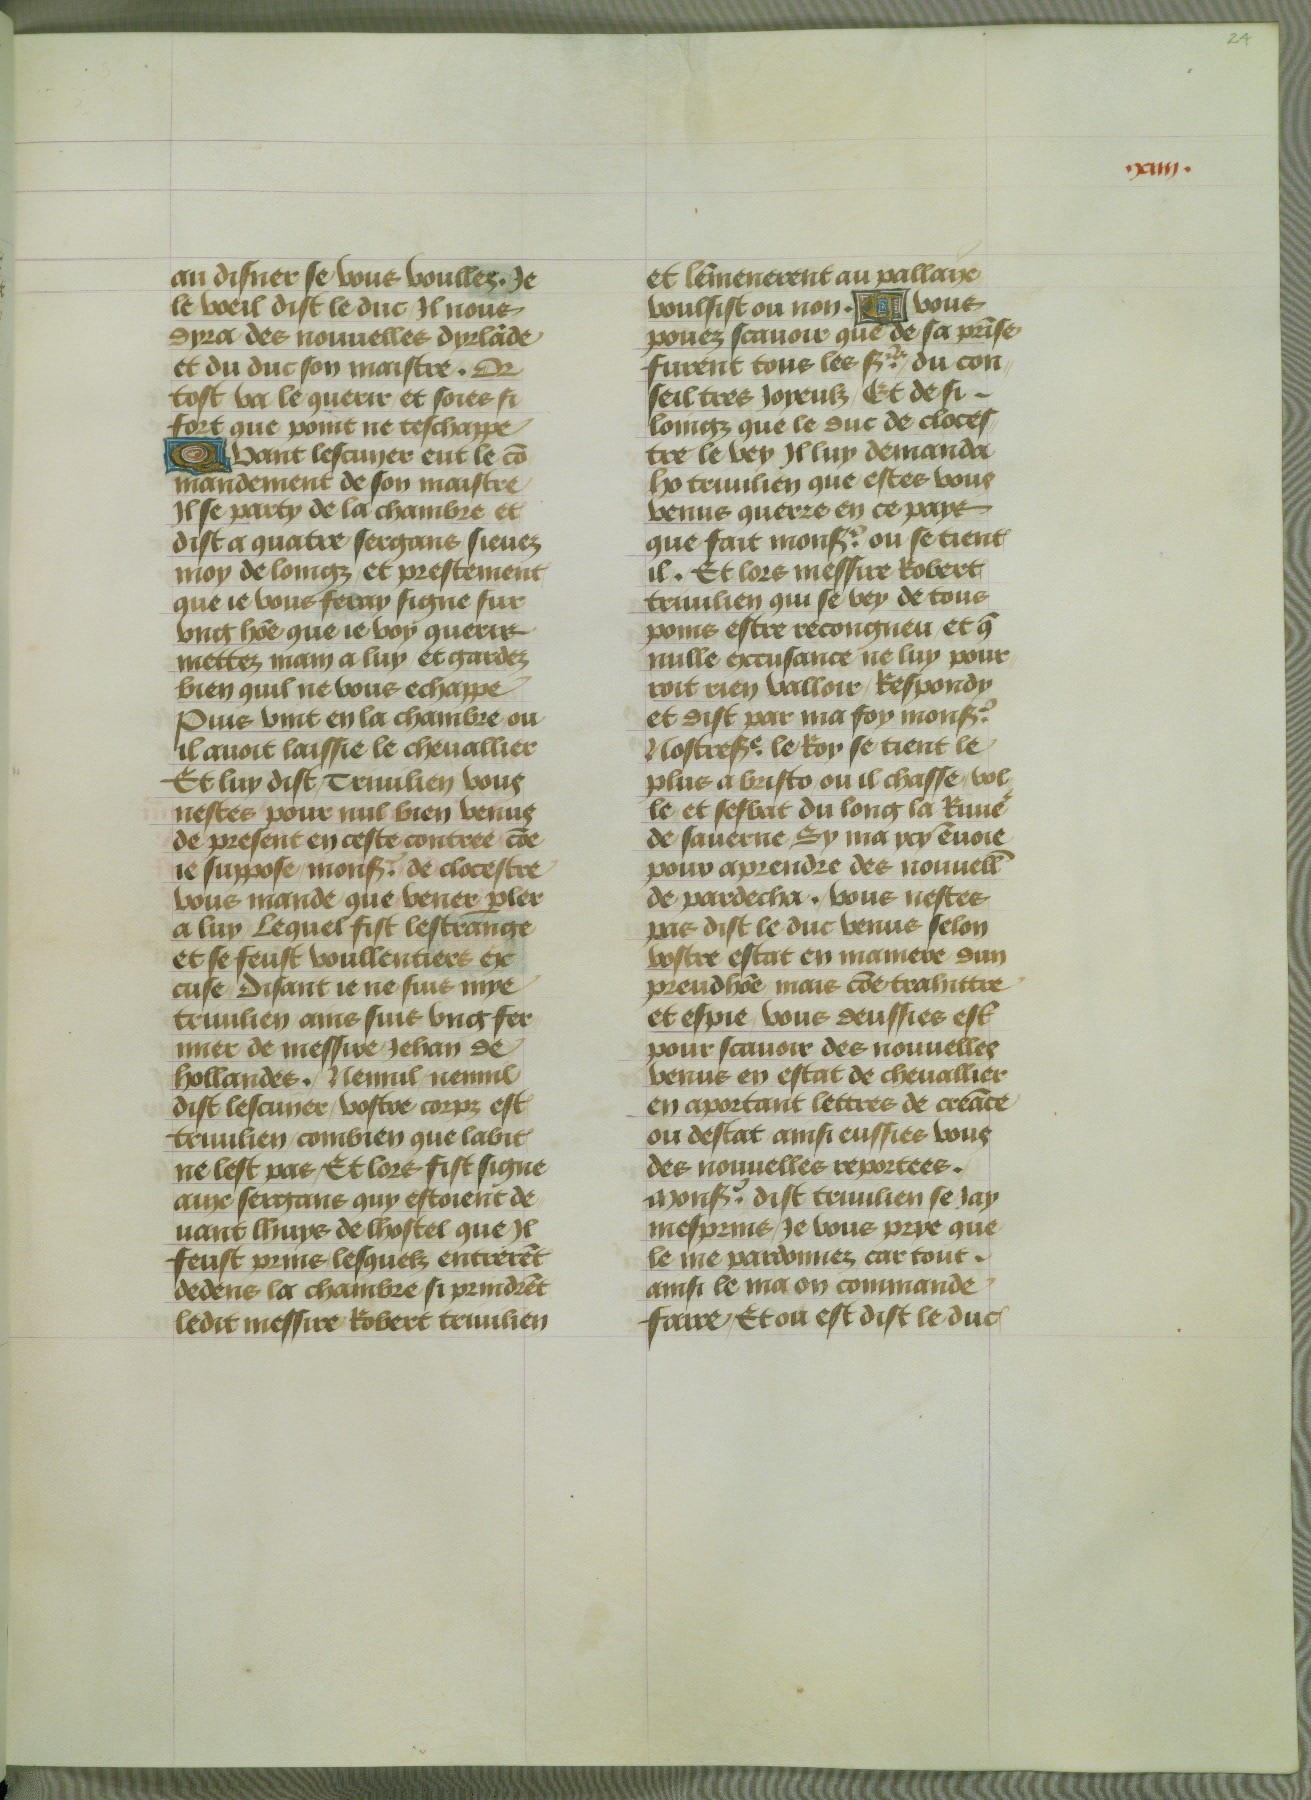 24
.xxiiij.
au disner se vous voullez. Je
le voeil dist le duc Il nous
dyra des nouuelles dyrlãde
et du duc son maistre. Or
tost va le querir et soies si
fort que point ne teschappe
Quant lescuyer eut le cõ
mandement de son maistre
Il se party de la chambre et
dist a quatre sergans sieuez
moy de loingz et prestement
que ie vous feray signe sur
vng hõe que ie voy querir
mettez main a luy et gardez
bien quil ne vous echappe
Puis vint en la chambre ou
il auoit laissie le cheuallier
Et luy dist / Triuilien vous
nestes pour nul bien venus
de present en ceste contree cõe
ie suppose / monsr. de clocestre
vous mande que vener pler
a luy Lequel fist lestrange
et se feust voullentiers ex
cuse / Disant ie ne suis mye
triuilien ains suis vng fer
mier de messire Jehan de
hollandes. / Nennil nennil
dist lescuyer / vostre corpz est
triuilien / combien que labit
ne lest pas / Et lors fist signe
aux sergans quy estoient de
uant lhuys de lhostel que Jl
feust prins lesquelz entrerẽt
dedens la chambre si prindrẽt
ledit messire Robert triuilien
et lẽmenerent au pallaix
voulsist ou non. Et vous
pouez scauoir que de sa prĩse
furent tous les srs. / du con
seil tres Joyeulz / Et de si
loingz que le duc de cloces
tre le vey Jl luy demanda
ho triuilien que estes vous
venus querre en ce pays
que fait monsr. ou se tient
il. Et lors messire Robert
triuilien qui se vey de tous
poins estre recongneu et q̃
nulle excusance ne luy pour
roit rien valloir / Respondy
et dist par ma foy monsr.
Nostresr. le Roy se tient le
plus a bristo ou il chasse / vol
le et sesbat du long la Riuie
de sauerne / Sy ma ycy ẽuoie
pour aprendre des nouuell̃
de pardecha. vous nestes
pas dist le duc venus selon
vostre estat en maniere dun
preudhõe mais cõe trahittre
et espie / vous deussies est̾
pour scauoir des nouuelles
venus en estat de cheuallier
en aportant lettres de creãce
ou destat ainsi eussies vous
des nouuelles reportees.
Monsr. dist triuilien se Jay
mesprins / Je vous prye que
le me pardonnez car tout
ainsi le ma on commande
faire / Et ou est dist le duc